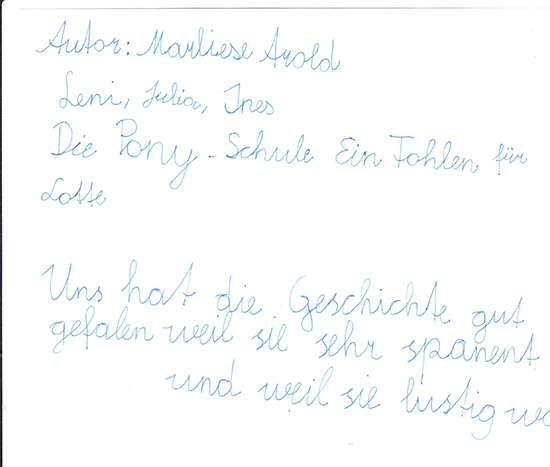 Autor: Marliese Arold
Leni, Julia, Ines
Die Pony-Schule Ein Fohlen für
Lotte
Uns hat die Geschichte gut
gefalen weil sie sehr spanent
und weil sie lustig